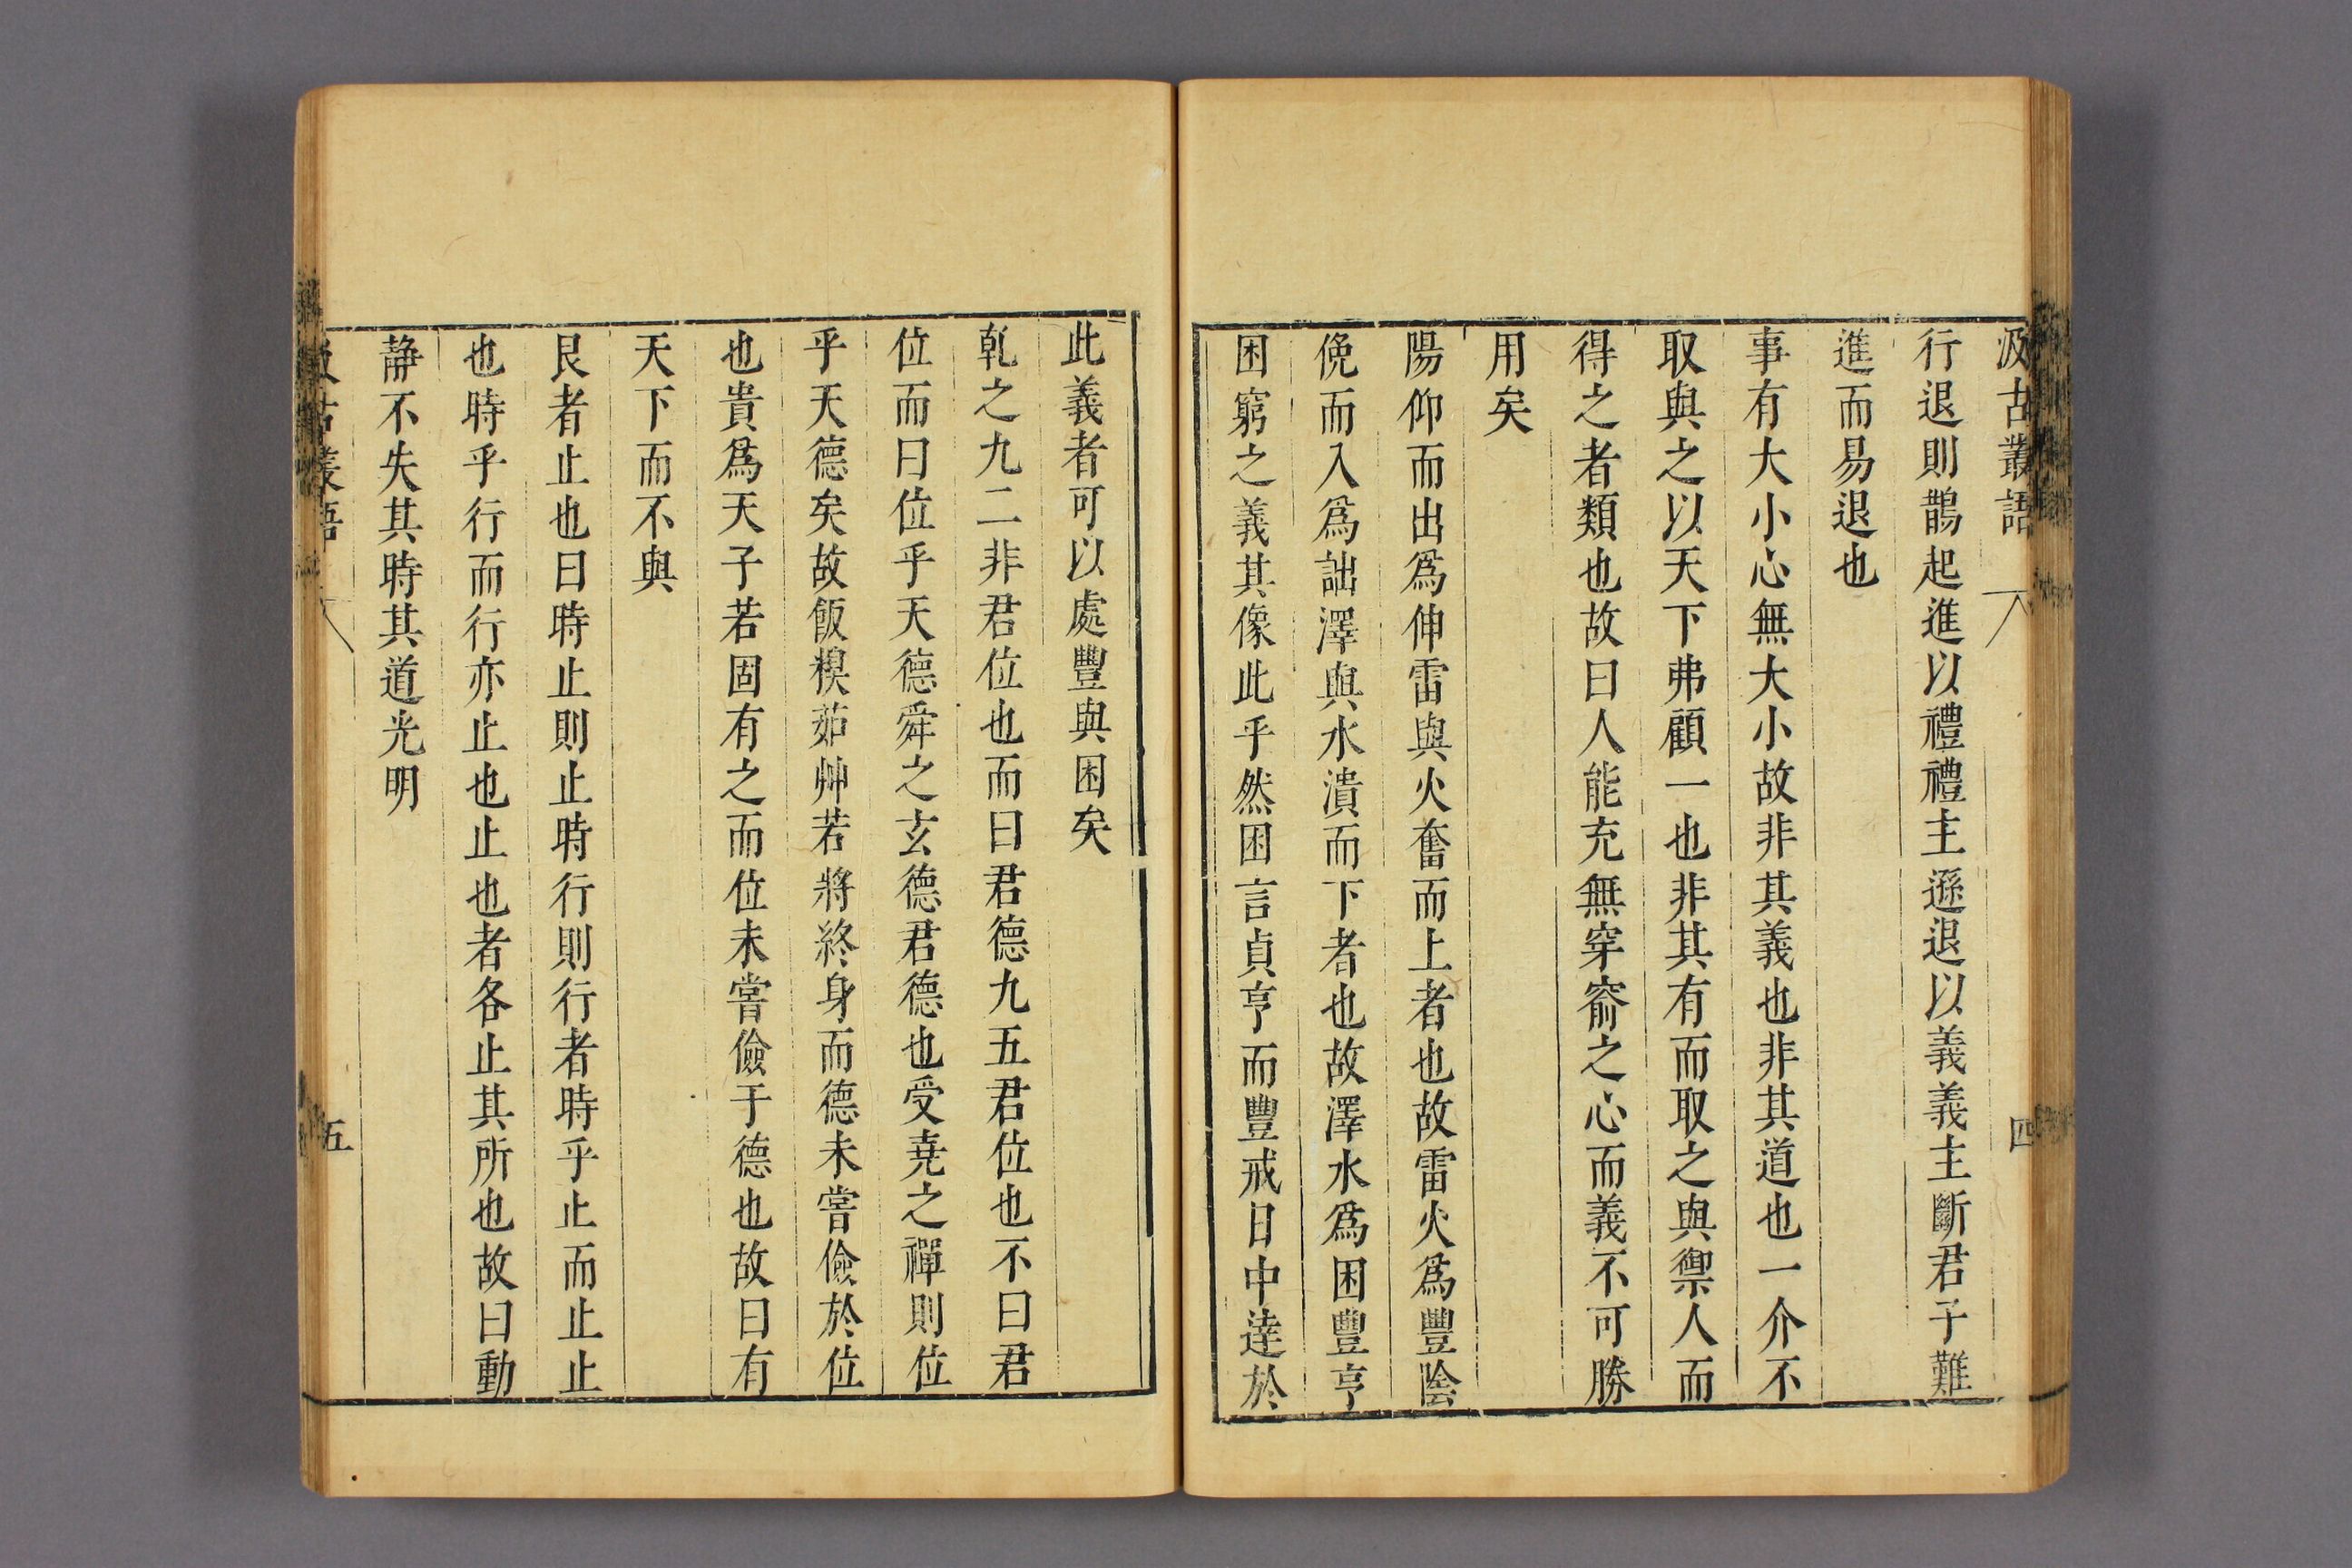 汲古叢語 四
行退則鵲起進以禮禮主遜退以義義主斷君子難
進而易退也
事有大小心無大小故非其義也非其道也一介不
取與之以天下弗顧一也非其有而取之與禦人而
得之者類也故曰人能充無穿窬之心而義不可勝
用矣
陽仰而出爲伸雷與火奮而上者也故雷火爲豐陰
俛而入爲詘澤與水潰而下者也故澤水爲困豐亨
困窮之義其像此乎然困言貞亨而豐戒日中達於
此義者可以處豐與困矣
乹之九二非君位也而曰君德九五君位也不曰君
位而曰位乎天德舜之玄德君德也受堯之禪則位
乎天德矣故飯糗茹艸若將終身而德未嘗儉於位
也貴爲天子若固有之而位未嘗儉于德也故曰有
天下而不與
艮者止也曰時止則止時行則行者時乎止而止止
也時乎行而行亦止也止也者各止其所也故曰動
静不失其時其道光明
汲古叢語 五